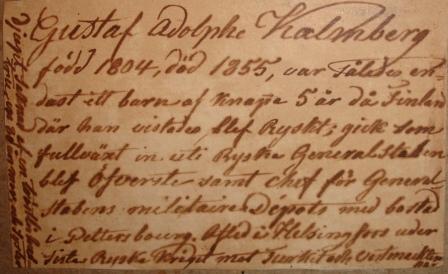 Gustaf Adolphe Kalmberg
född 1804, död 1855, var således en
dast ett barn af knapa 5 år då Finland
där han vistades blef Ryskt; gick som
fullväxt in uti Ryska General Staben
blef Öfverste samt chef för General
Stabens militaire Dépots med bostad
i Pettersbourg. Afled i Helsingfors under
sista Ryska Kriget mot Turkiet och Vestmackter